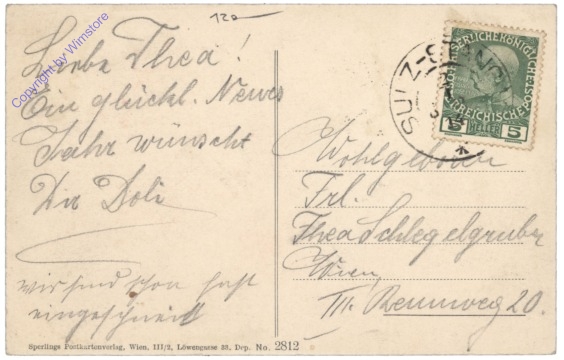 12a
Liebe Thea!
Ein glückl. Neues
Jahr wünscht
Dir Doli
wir sind schon fast
eingeschneit
Wohlgeboren
Frl.
Thea Schlegelgruber
Wien,
III. Rennweg 20.
SULZ-
KAISERLICHE KÖNIGLICHE ÖSTERREICHISCHE
5 5
Sperlings Postkartenverlag, Wien, III/2, Löwengasse 38, Dep. No. 2812
Copyright by Wimstore